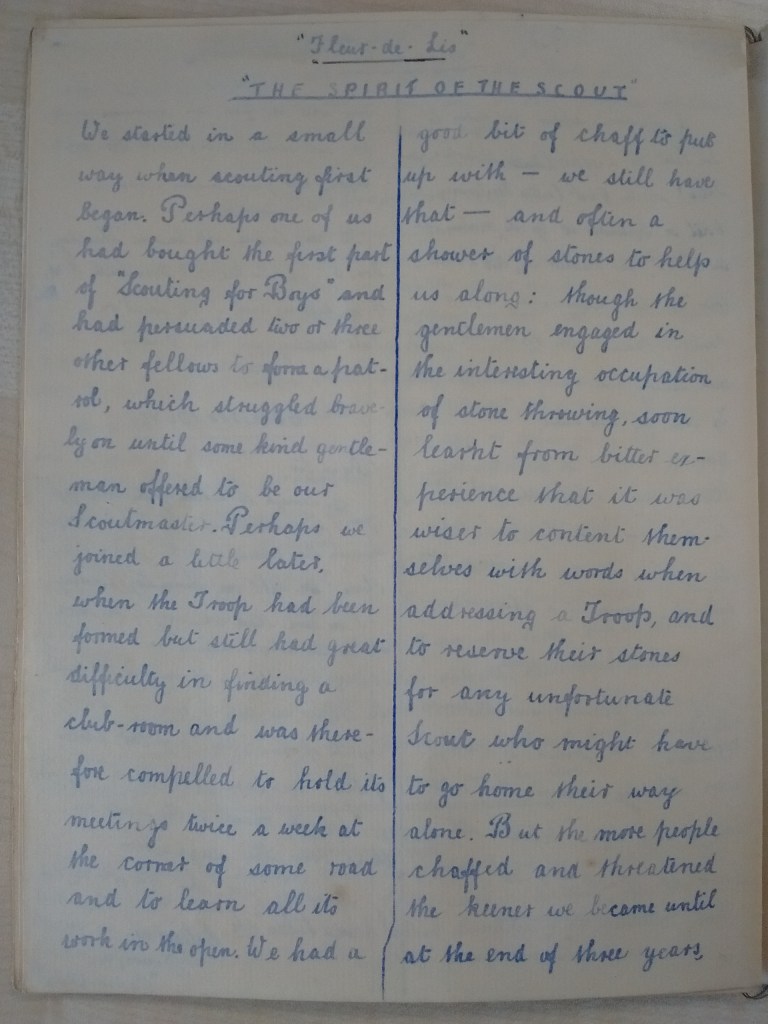 "Fleur-de-Lis"
"THE SPIRIT OF THE SCOUT"
We started in a small
way when scouting first
began. Perhaps one of us
had bought the first part
of "Scouting for Boys" and
had persuaded two or three
other fellows to form a pat-
rol, which struggled brave-
ly on until some kind gentle-
man offered to be our
Scoutmaster. Perhaps we
joined a little later,
when the Troop had been
formed but still had great
difficulty in finding a
club-room and was there-
fore compelled to hold its
meetings twice a week at
the corner of some road
and to learn all its
work in the open. We had a
good bit of chaff to put
up with — we still have
that — and often a
shower of stones to help
us along: though the
gentlemen engaged in
the interesting occupation
of stone throwing, soon
learnt from bitter ex-
perience that it was
wiser to content them-
selves with words when
addressing a Troop, and
to reserve their stones
for any unfortunate
Scout who might have
to go home their way
alone. But the more people
chaffed and threatened
the keener we became until
at the end of three years,